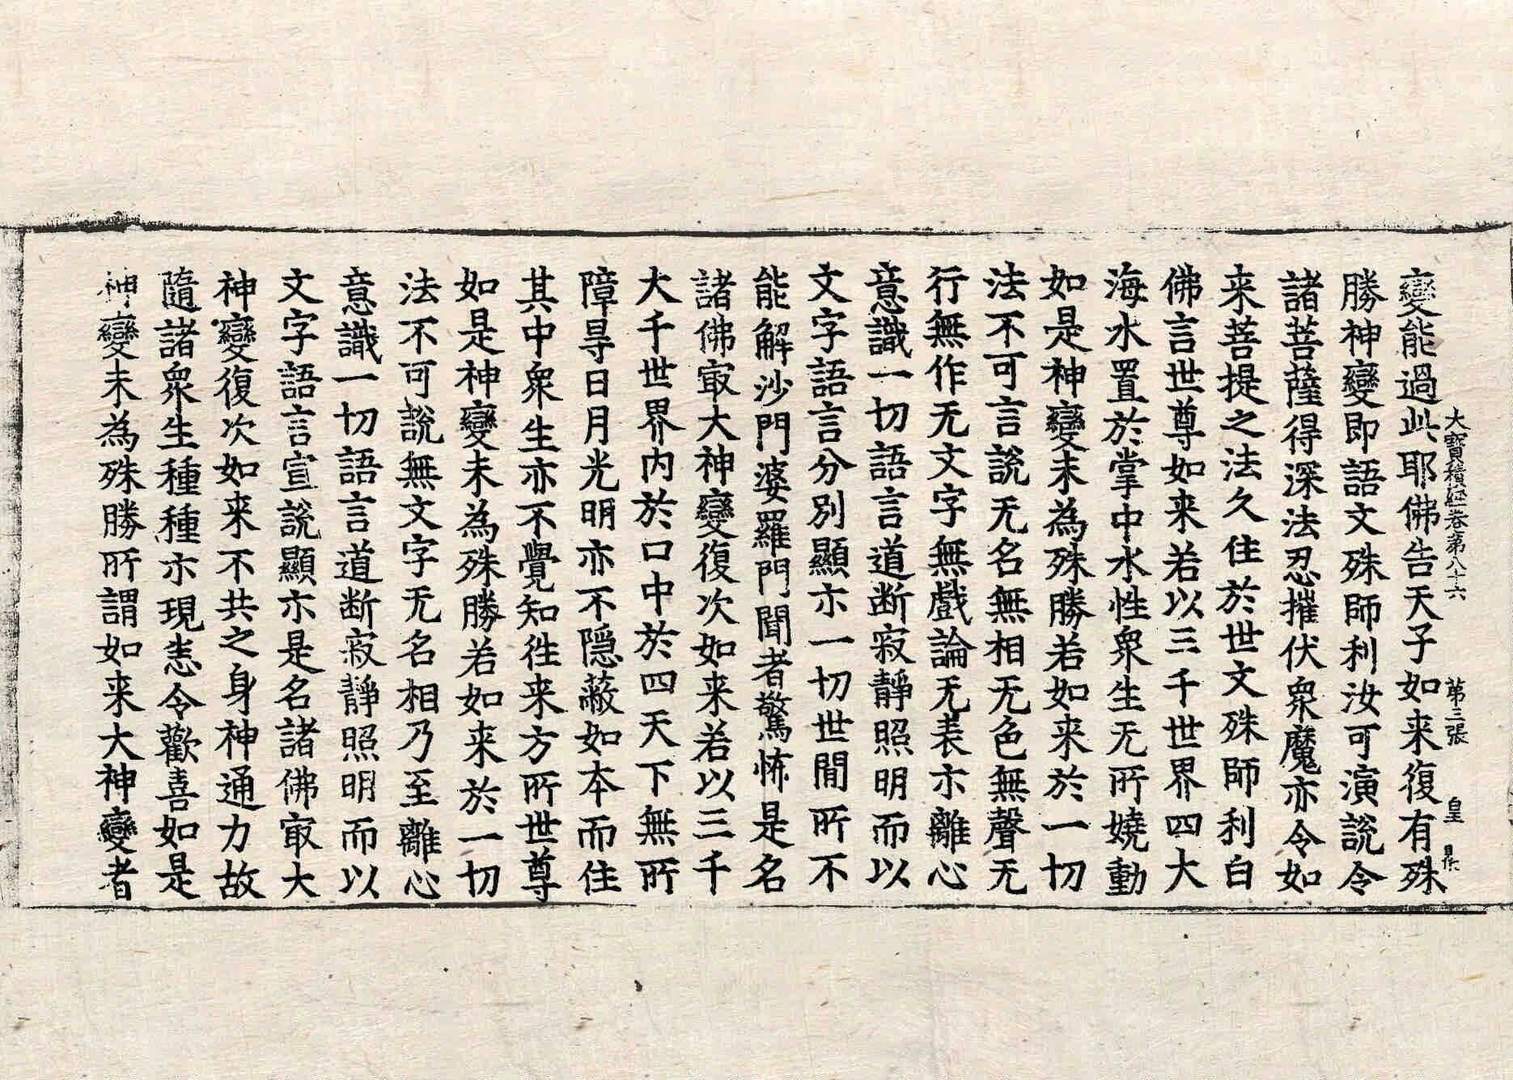 變能過此耶佛告天子如来復有殊
大寶積經卷第八十六　第三張　皇
勝神變即語文殊師利汝可演說令
諸菩薩得深法忍摧伏衆魔亦令如
来菩提之法久住於世文殊師利白
佛言世尊如来若以三千世界四大
海水置於掌中水性衆生无所嬈動
如是神變未為殊勝若如来於一切
法不可言說无名無相无色無聲无
行無作无文字無戲論无表示離心
意識一切語言道断寂靜照明而以
文字語言分別顯示一切世間所不
能解沙門婆羅門聞者驚怖是名
諸佛㝡大神變復次如来若以三千
大千世界内於口中於四天下無所
障㝵日月光明亦不隠蔽如本而住
其中衆生亦不覺知徃来方所世尊
如是神變未為殊勝若如来於一切
法不可說無文字无名相乃至離心
意識一切語言道断寂靜照明而以
文字語言宣說顯示是名諸佛㝡大
神變復次如来不共之身神通力故
隨諸衆生種種示現悉令歡喜如是
神變未為殊勝所謂如来大神變者